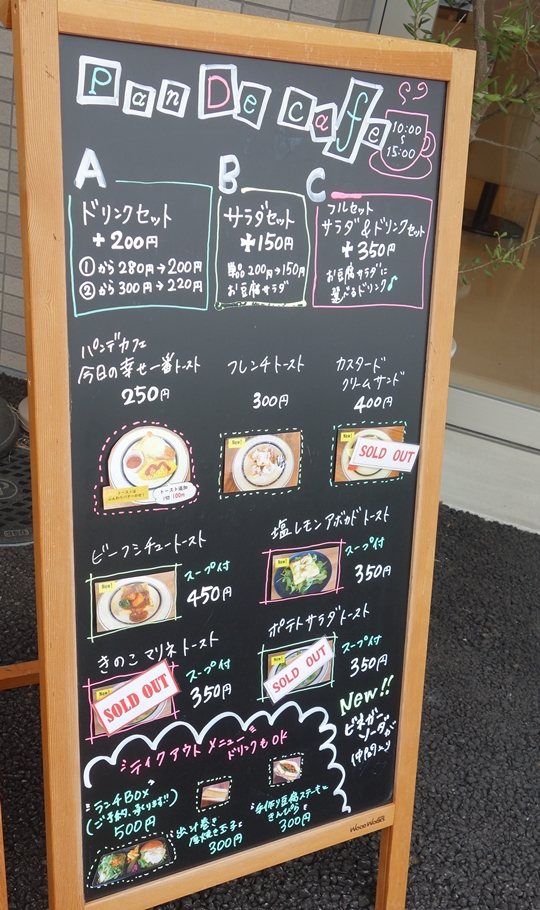 Pan De cafe
10:00
〜
15:00
A
ドリンクセット
+200円
①から280円→200円
②から300円→220円
B
サラダセット
+150円
単品200円→150円
お豆腐サラダ
C
フルセット
サラダ&ドリンクセット
+350円
お豆腐サラダに
選べるドリンク♪
パンデカフェ
今日の幸せ一番トースト
250円
フレンチトースト
300円
カスタード
クリームサンド
400円
New!
トースト追加
1枚 100円
New!
New!
SOLD OUT
ビーフシチュートースト
New!
スープ付
450円
塩レモンアボカドトースト
New!
スープ付
350円
きのこマリネトースト
New!
SOLD OUT
スープ付
350円
ポテトサラダトースト
New!
SOLD OUT
スープ付
350円
New!!
ビネガー
ソーダが
仲間入り
テイクアウトメニュー
ドリンクもOK
ランチBOX
(ご予約承ります!!)
500円
300円
手作り豆腐ステーキと
きんぴら
300円